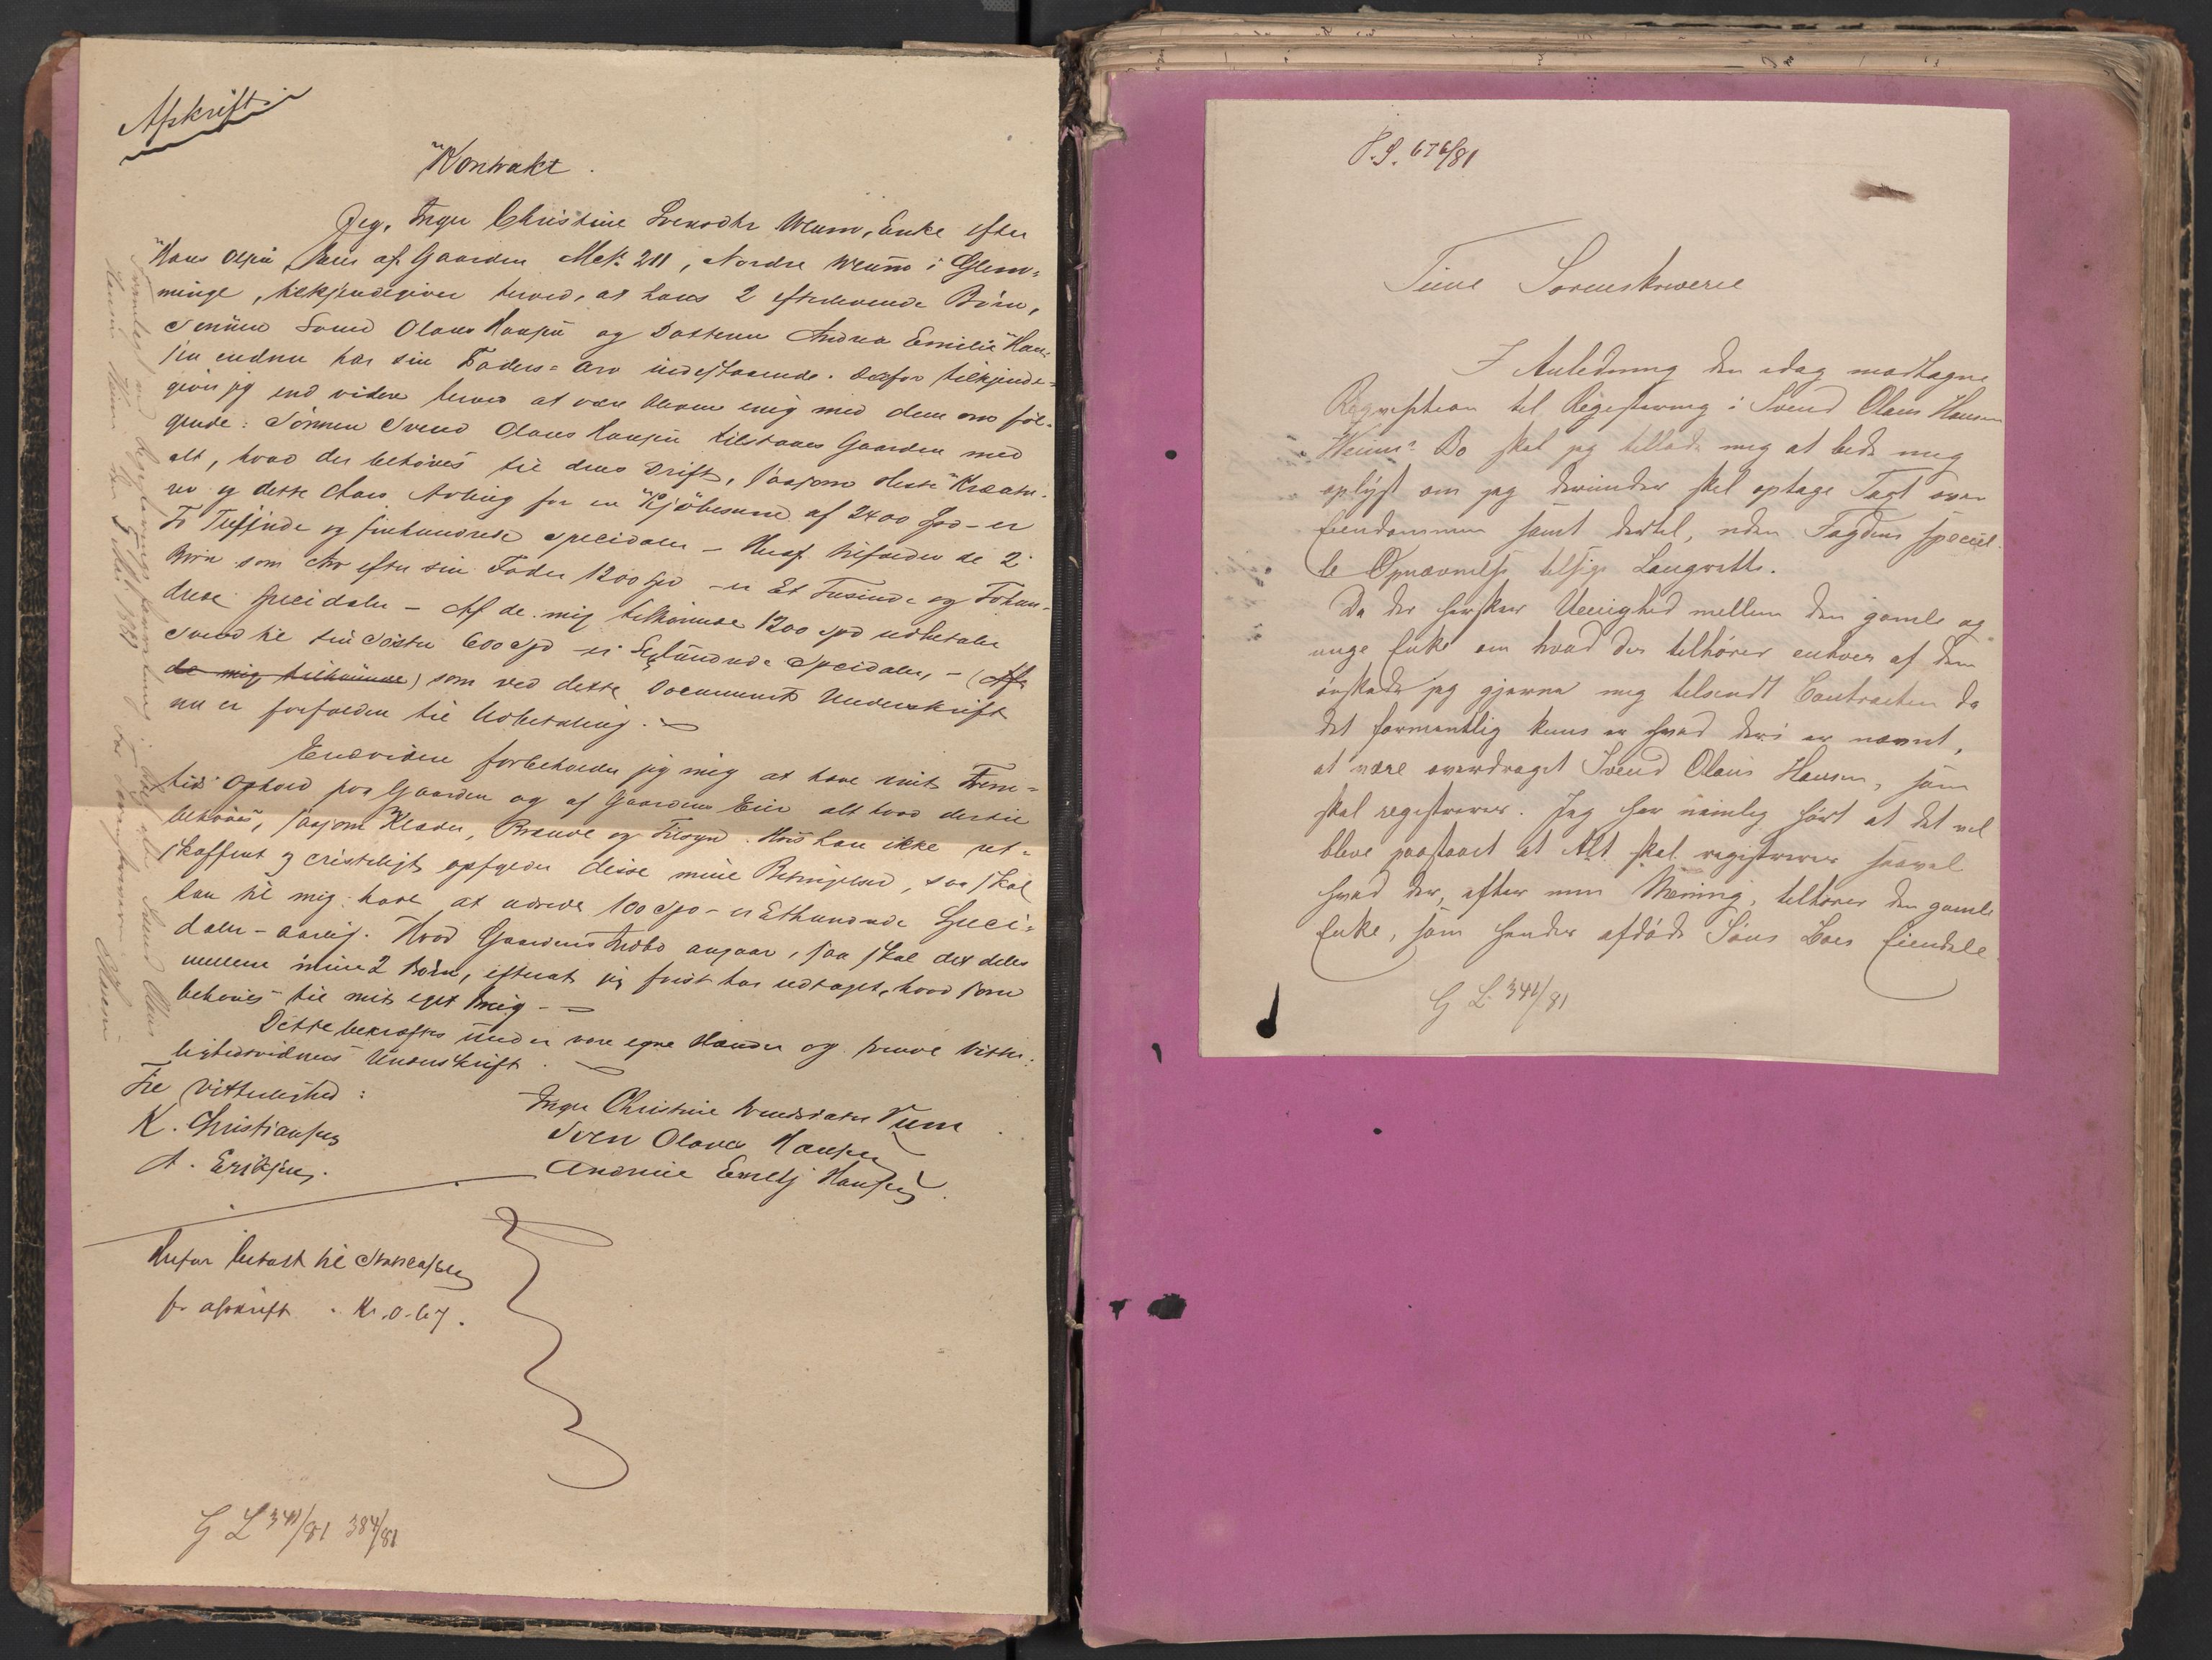 Afskrift
Kontrakt.
Jeg, Inger Christine Svensdtr Weum, Enke efter
Hans Olsen, Eier af Gaarden Mat: 211, Nordre Weum i Glem-
minge, tilkjendegiver herved, at hans 2 efterlevende Børn,
Sønnen Svend Olaus Hansen og Datteren Andrea Emilie Han-
sen endnu har sin Faders-Arv indestaaende. Derfor tilkjende-
giver jeg end videre herved at være bleven enig med dem om føl-
gende: Sønnen Svend Olaus Hansen tilstaaes Gaarden med
alt, hvad der behøves til dens Drift, saasom Heste Kreatu-
rer og dette Aars Avling for en Kjøbesum af 2400 Spd - er
To Tusinde og firehundrede Specidaler - Heraf tilfalder de 2
Børn som Arv efter sin Fader 1200 Spd - er Et Tusinde og Tohun-
drede Specidaler - Af de mig tilkomne 1200 Spd udbetaler
Svend til sin Søster 600 Spd er Sexhundrede Specidaler, - (Af
de mig tilkomne) som ved dette Documents Underskrift
nu er forfalden til Udbetaling.
Endvidere forbeholder jeg mig at have mit Frem-
tids Ophold paa Gaarden og af Gaardens Eier alt hvad dertil
behøves, saasom Klæder, Brænde og Tilsyn. Hvis han ikke ret-
skaffent og cristeligt opfylder disse mine Betingelser, saa skal
han til mig have at udrede 100 Spd - er Ethundrede Speci-
daler - aarlig. Hvad Gaardens Indbo angaar, saa skal det deles
mellem mine 2 Børn, efterat jeg først har udtaget, hvad som
behøves til mit eget Brug -
Dette bekræftes under vore egne Hænder og tvende Vitter-
lighedsvidners Underskrift.
Til Vitterlighed:
K. Christiansen
A. Eriksen.
Inger Christine Svendsdatter Vum
Sven Olaves Hansen
Andrine Emelj Hansen.
Herfor betalt til Statscassen
for afskrift . Kr. 0-67.
G L 341/81 384/81
P.S. 676/81
Tune Sorenskriverie
I Anledning den idag modtagne
Reqvisition til Registrering i Svend Olaus Hansen
Weums Bo skal jeg tillade mig at bede mig
oplyst om jeg derunder skal optage Taxt over
Eiendommen samt dertil, uden Fogdens speciel-
le Opnævnelse tilsige Laugrette.
Da der hersker Uenighed mellem den gamle og
unge Enke om hvad der tilhører enhver af dem
ønskede jeg gjerne mig tilsendt Contracten da
det formentlig kuns er hvad deri er nævnt,
at være overdraget Svend Olaus Hansen, som
skal registreres. Jeg har nemlig hørt at det vil
blive paastaaet at Alt skal registreres saavel
hvad der, efter min Mening, tilhører den gamle
Enke, som hendes afdøde Søns Boes Eiendele
G L 341/81